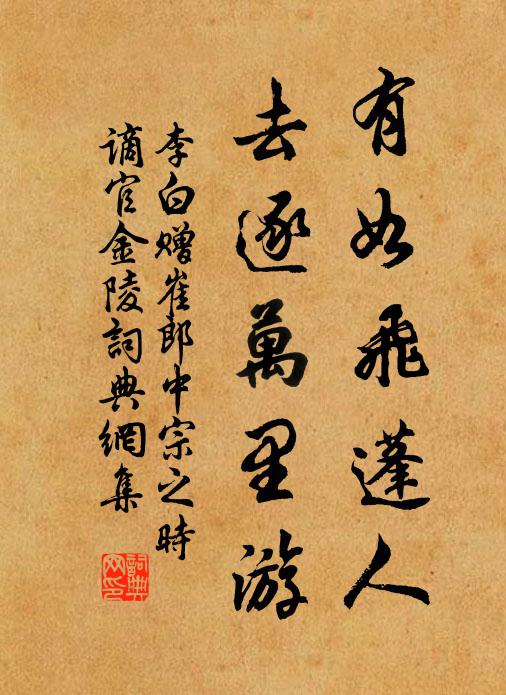 有如飛蓬人
去逐萬里游
李白贈崔郎中宗之時
謫官金陵詞典網集
詞典
网印